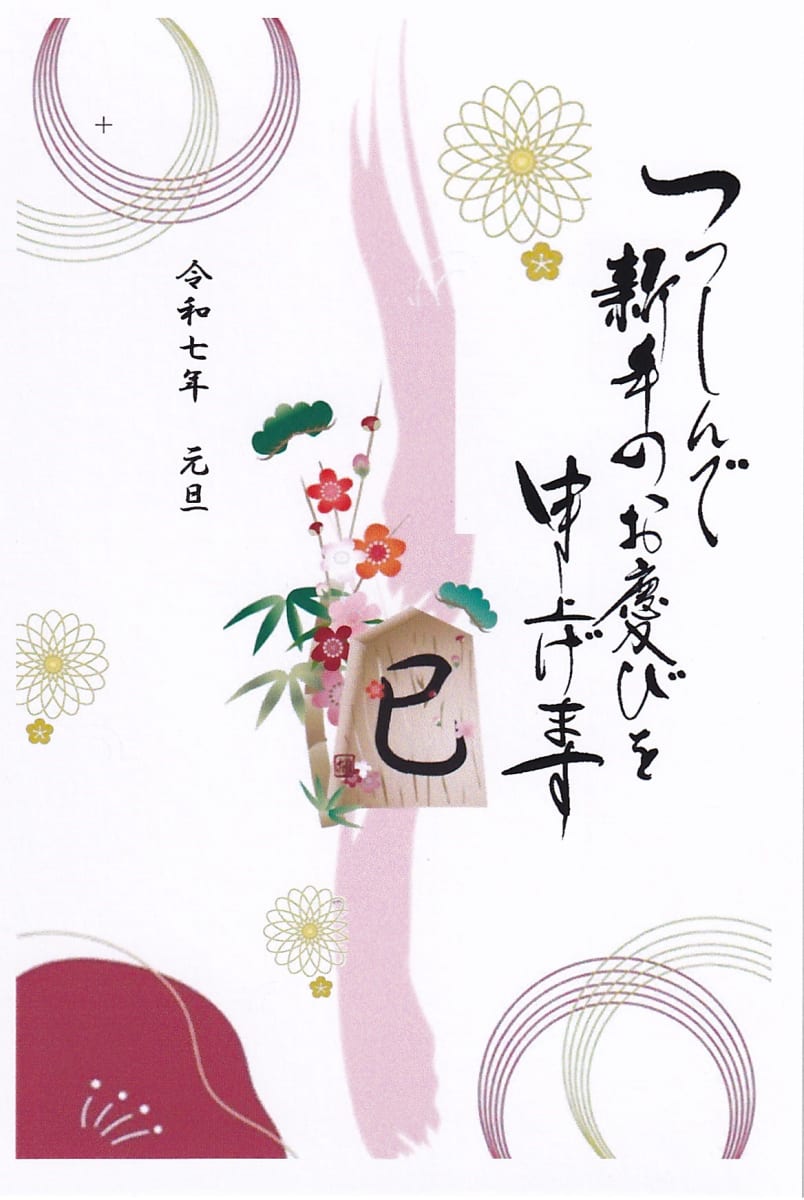 つつしんで
新年のお慶びを
申し上げます
令和七年 元旦
巳